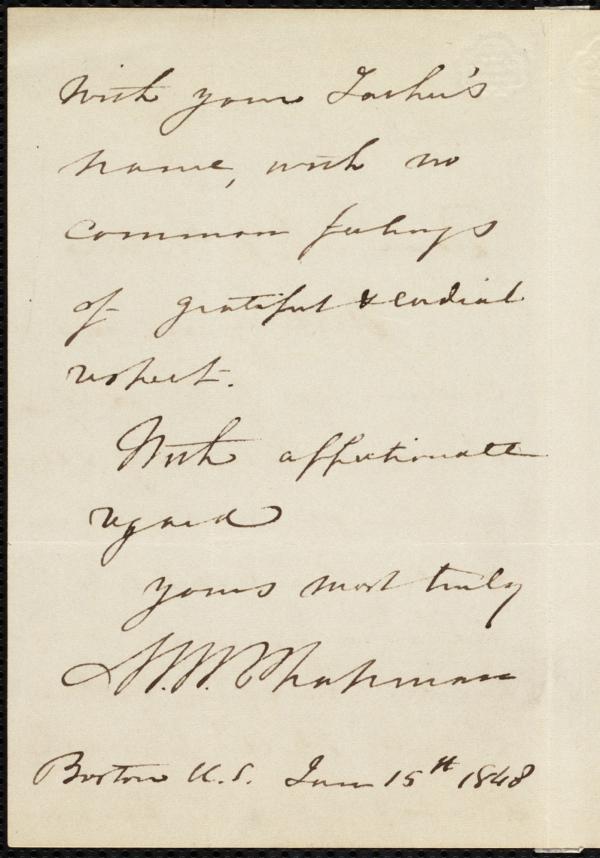 With your Father's
name, with no
common feelings
of grateful & cordial
respect.
With affectionate
regard
yours most truly
M. W. Chapman
Boston U. S. Jan 15th 1848